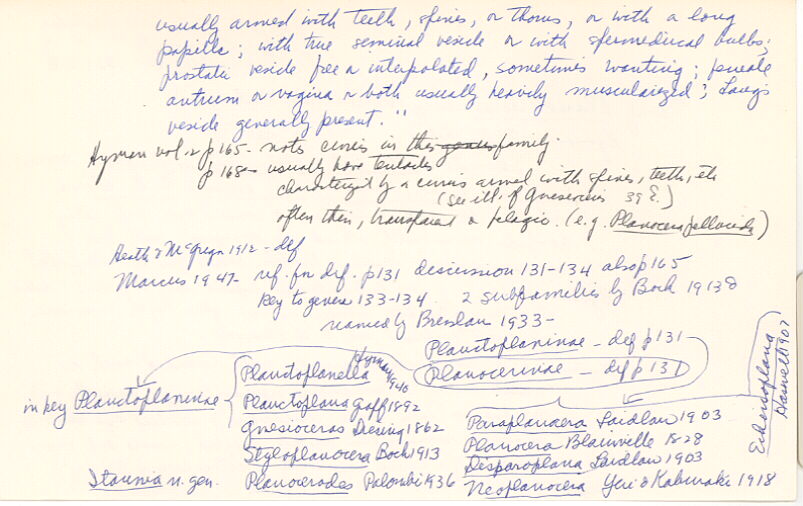 usually armed with teeth, spines, or thorns, or with a long
papilla; with true seminal vesicle or with spermiducal bulbs;
prostatic vesicle free or interpolated, sometimes wanting; female
antrum or vagina or both usually heavily muscularized; Lang's
vesicle generally present."
Hyman vol. 2 p165- notes cirrus in this genus family.
p168- usually have tentacles
characterized by a cirrus armed with spines, teeth, etc
(see ill. of Gnesioceros 39 E.)
often thin, transparent & pelagic. (e.g. Planocera pellucida)
Heath & McGregor 1912 - def
Marcus 1947- ref. for def. p131 discussion 131-134 also p165
Key to genera 133-134. 2 subfamilies by Bock 1913
named by Breslau 1933-
Planctoplaninae - def p131
Planocerinae - def p131
in key Planctoplaninae
Planctoplanella Hyman 1940
Planctoplana Graff 1892
Gnesioceros Diesing 1862
Styloplanocera Bock 1913
Itannia n. gen. Planocerodes Palombi 1936
Paraplanocera Laidlaw 1903
Planocera Blainville 1828
Disparoplana Laidlaw 1903
Neoplanocera Yeri & Kaburaki 1918
Echinoplana Haswell 1907